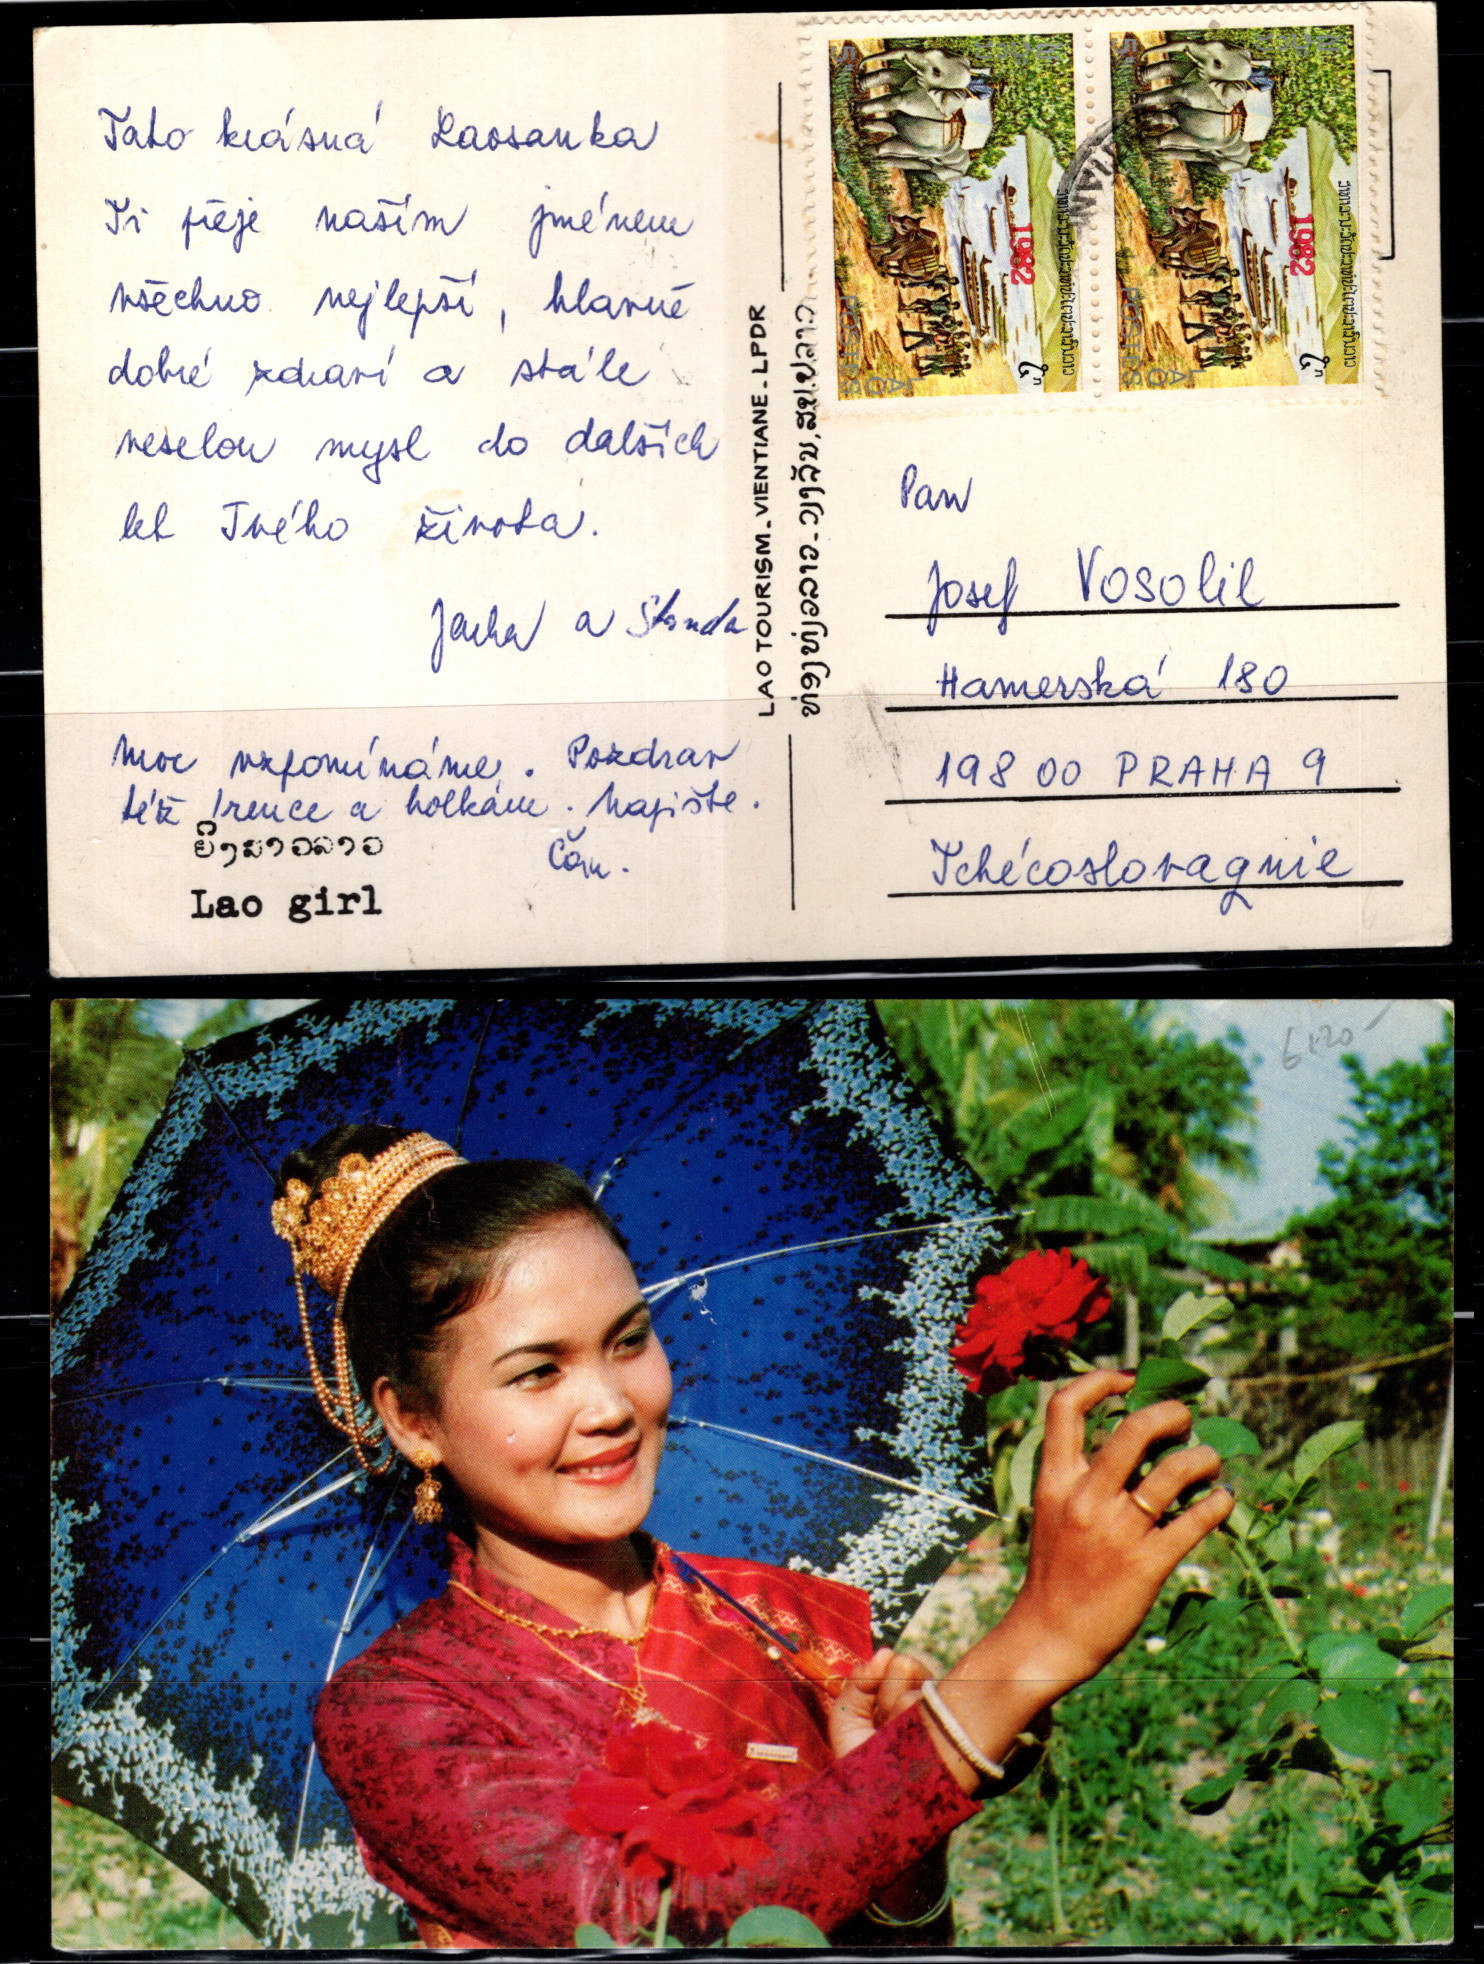 Tato krásná Laosanka
Ti přeje naším jménem
všechno nejlepší, hlavně
dobré zdraví a stále
veselou mysl do dalších
let Tvého života.
Jarka a Standa
Moc vzpomínáme. Pozdrav
též Irence a holkám. Napište.
Čau.
ຍິງສາວລາວ
Lao girl
LAO TOURISM - VIENTIANE - LPDR
1982
1982
POSTES
LAO
POSTES
LAO
Pan
Josef Vosolil
Hamerská 180
198 00 PRAHA 9
Tchécoslovaquie